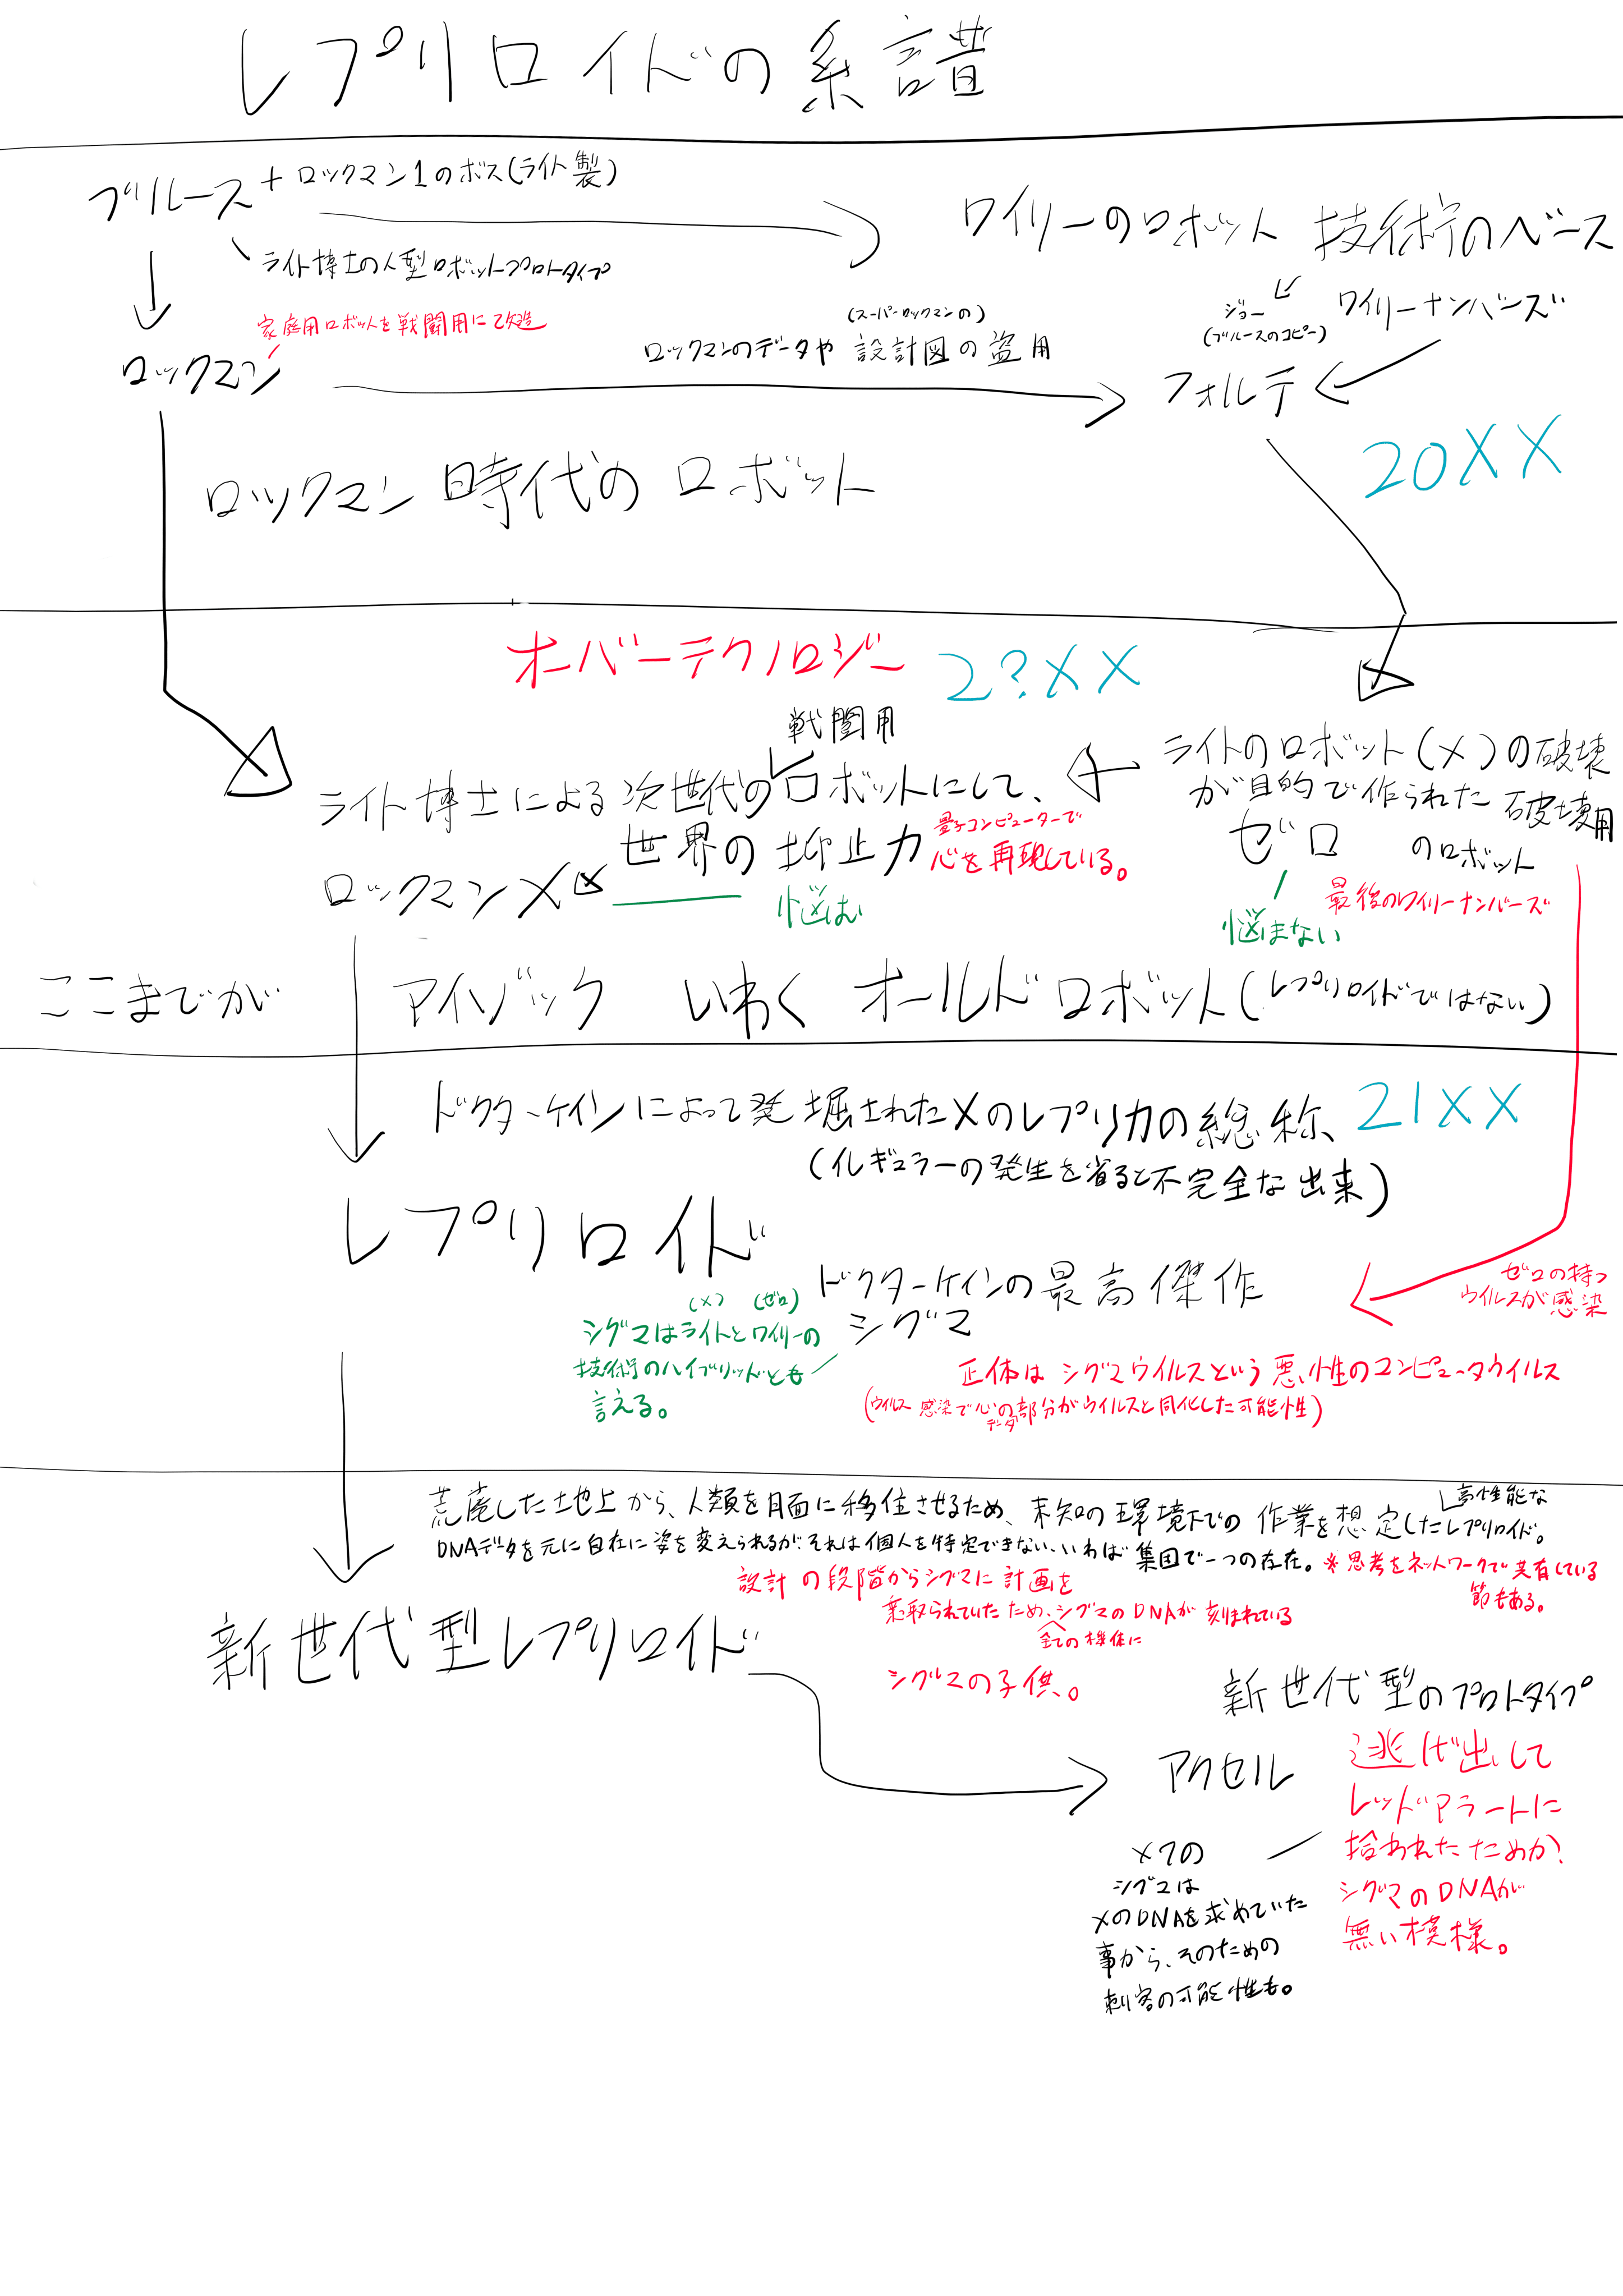 レプリロイドの系譜
ブルース + ロックマン1のボス(ライト製)
ワイリーのロボット 技術のベース
ライト博士の人型ロボットプロトタイプ
家庭用ロボットを戦闘用に改造
ロックマン
(スーパーロックマンの)
ロックマンのデータや 設計図の盗用
ジョー
(ブルースのコピー)
ワイリーナンバーズ
フォルテ
20XX
ロックマン時代の ロボット
オーバーテクノロジー
2?XX
戦闘用
ライト博士による次世代のロボットにして、
世界の抑止力
量子コンピューターで
心を再現している。
ロックマンX
悩む
ライトのロボット(X)の破壊
が目的で作られた 破壊用
ゼロ のロボット
最後のワイリーナンバーズ
悩まない
ここまでが アイゾック いわく オールドロボット(レプリロイドではない)
ドクターケインによって発掘されたXのレプリカの総称、
21XX
(イレギュラーの発生を省ると不完全な出来)
レプリロイド
ドクターケインの最高傑作
シグマ
ゼロの持つ
ウイルスが感染
(X) (ゼロ)
シグマはライトとワイリーの
技術のハイブリッドとも
言える。
正体はシグマウイルスという悪性のコンピュータウイルス
(ウイルス感染で心の部分がウイルスと同化した可能性)
データ
高性能な
荒廃した地上から、人類を月面に移住させるため、未知の環境下での作業を想定したレプリロイド。
DNAデータを元に自在に姿を変えられるがそれは個人を特定できない、いわば集団で一つの存在。※思考をネットワークで共有している
節もある。
設計の段階からシグマに計画を
乗取られていたため、シグマのDNAが刻まれている
全ての機体に
シグマの子供。
新世代型レプリロイド
新世代型のプロトタイプ
アクセル
逃げ出して
レッドアラートに
拾われたためか?
シグマのDNAが
無い模様。
X7の
シグマは
XのDNAを求めていた
事から、そのための
刺客の可能性も。